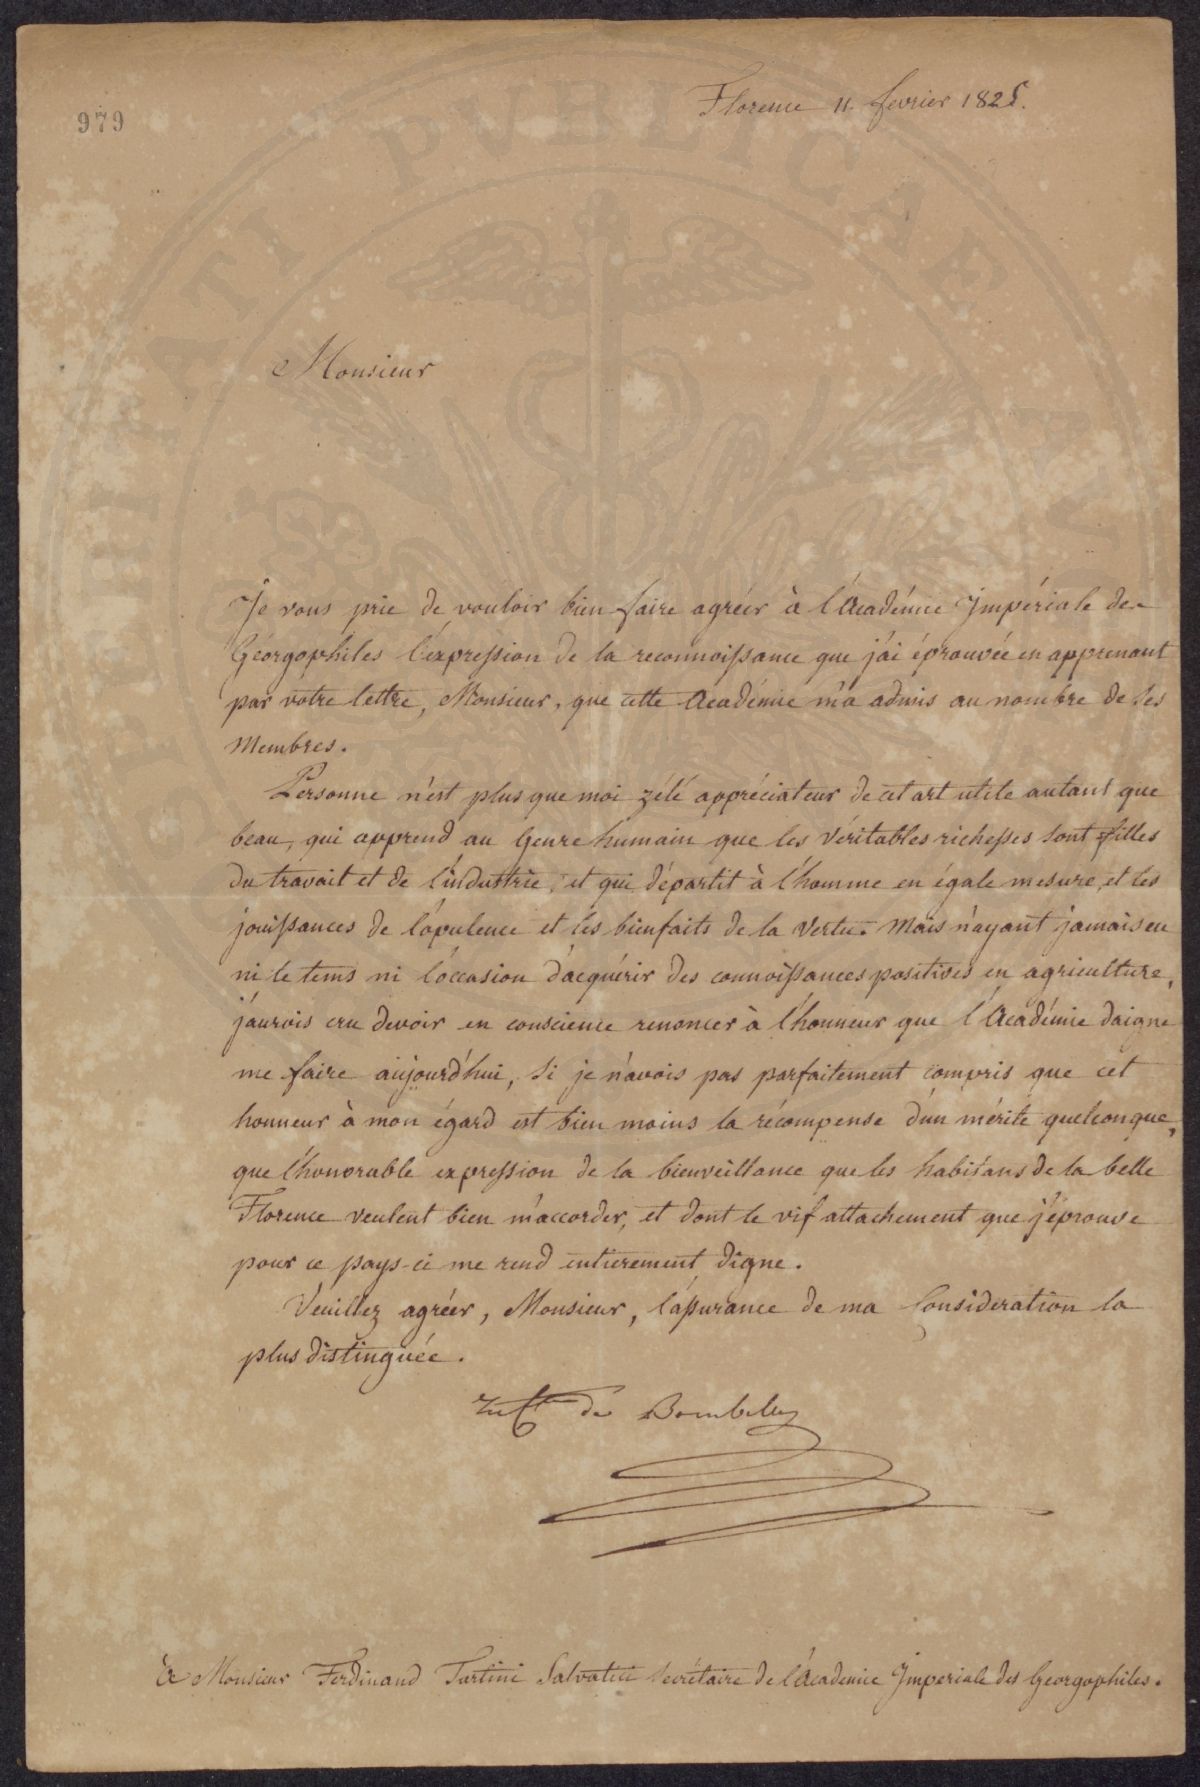 979
Florence 11. fevrier 1825.
PROSPERITATI PVBLICAE AV
Monsieur
Je vous prie de vouloir bien faire agréer à l'Académie Impériale des
Géorgophiles l'expression de la reconnoissance que j'ai éprouvée en apprenant
par votre lettre, Monsieur, que cette Académie m'a admis au nombre de ses
Membres.
Personne n'est plus que moi zélé appréciateur de cet art utile autant que
beau, qui apprend au Genre humain que les véritables richesses sont filles
du travail et de l'industrie, et qui départit à l'homme en égale mesure, et les
jouissances de l'opulence et les bienfaits de la Vertu. Mais n'ayant jamais eu
ni le tems ni l'occasion d'acquérir des connoissances positives en agriculture,
j'aurois cru devoir en conscience renoncer à l'honneur que l'Académie daigne
me faire aujourd'hui, si je n'avois pas parfaitement compris que cet
honneur à mon égard est bien moins la récompense d'un mérite quelconque,
que l'honorable expression de la bienveillance que les habitans de la belle
Florence veulent bien m'accorder, et dont le vif attachement que j'éprouve
pour ce pays-ci me rend entierement digne.
Veuillez agréer, Monsieur, l'assurance de ma Consideration la
plus distinguée.
de Bombelles
à Monsieur Ferdinand Tartini Salvatici Secrétaire de l'Academie Imperiale des Georgophiles.